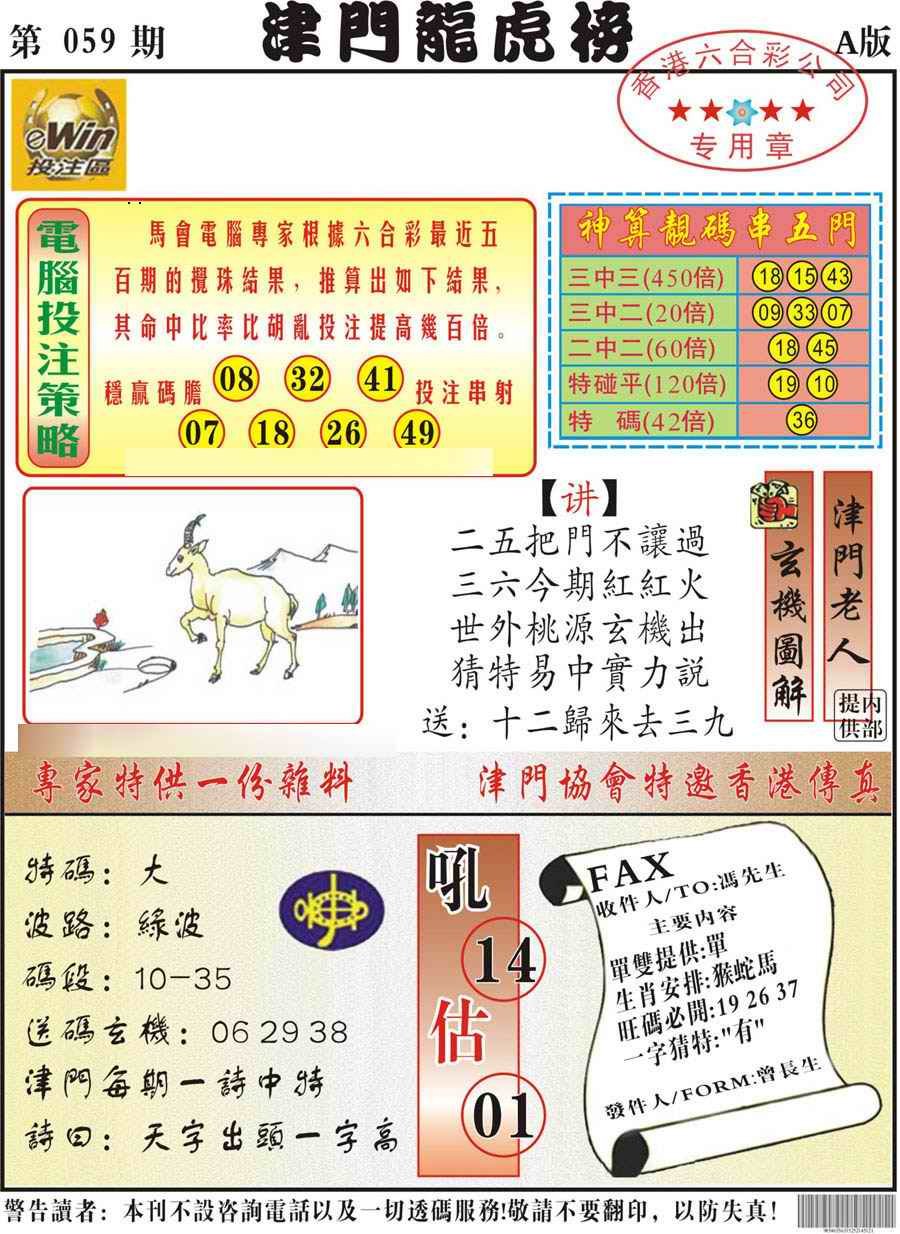 第 059 期
津門龍虎榜
A版
香港六合彩公司
专用章
eWin
投注區
電腦投注策略
馬會電腦專家根據六合彩最近五
百期的攪珠結果，推算出如下結果，
其命中比率比胡亂投注提高幾百倍。
穩贏碼膽 08 32 41 投注串射
07 18 26 49
神算靚碼串五門
三中三(450倍) 18 15 43
三中二(20倍) 09 33 07
二中二(60倍) 18 45
特碰平(120倍) 19 10
特 碼(42倍) 36
【讲】
二五把門不讓過
三六今期紅紅火
世外桃源玄機出
猜特易中實力説
送：十二歸來去三九
玄機圖解
津門老人
内部提供
專家特供一份雜料
津門協會特邀香港傳真
特碼：大
波路：綠波
碼段：10-35
送碼玄機：06 29 38
津門每期一詩中特
詩曰：天字出頭一字高
吼
14
估
01
FAX
收件人/TO:馮先生
主要内容
單雙提供:單
生肖安排:猴蛇馬
旺碼必開:19 26 37
一字猜特:"有"
發件人/FORM:曾長生
警告讀者：本刊不設咨詢電話以及一切透碼服務!敬請不要翻印，以防失真!